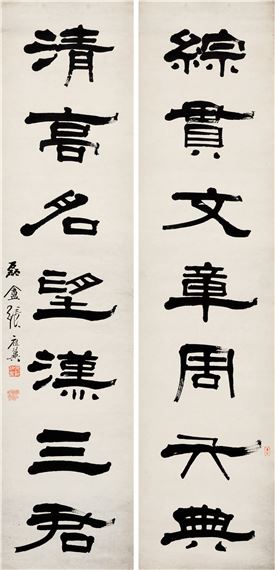 綜貫文章周六典
清高名望漢三君
磊盦張祖翼